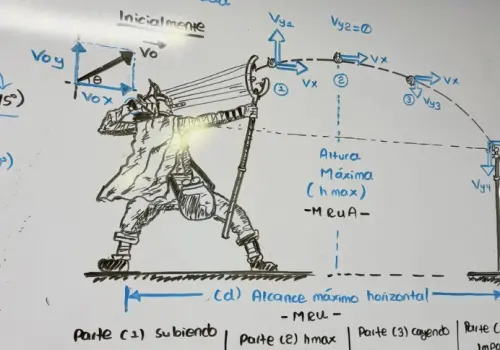 Inicialmente
Voy
Vo
θ
Vox
Vy1
Vx
①
Vy2=0
Vx
②
Vx
③
Vy3
Vy4
Altura
Máxima
(hmax)
-MRUA-
(d) Alcance máximo horizontal
-MRU-
Parte (1) subiendo
Parte (2) hmax
Parte (3) cayendo